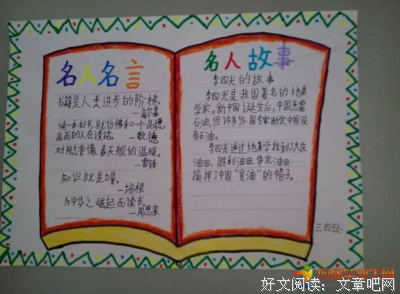 名人名言
书籍是人类进步的阶梯。
—高尔基
读一本好书,就仿佛和一个品德
高尚的人在谈话。—歌德
对同志要像春天般的温暖。
—雷锋
知识就是力量。
—培根
为中华之崛起而读书
—周恩来
名人故事
李四光的故事
李四光是我国著名的地质
学家,新中国诞生后,中国急需
石油,但许多外国专家断定中国没
有石油。
李四光通过地质学找到了大庆
油田、胜利油田、华北油田
摘掉了中国“贫油”的帽子。
好文阅读:文章吧网